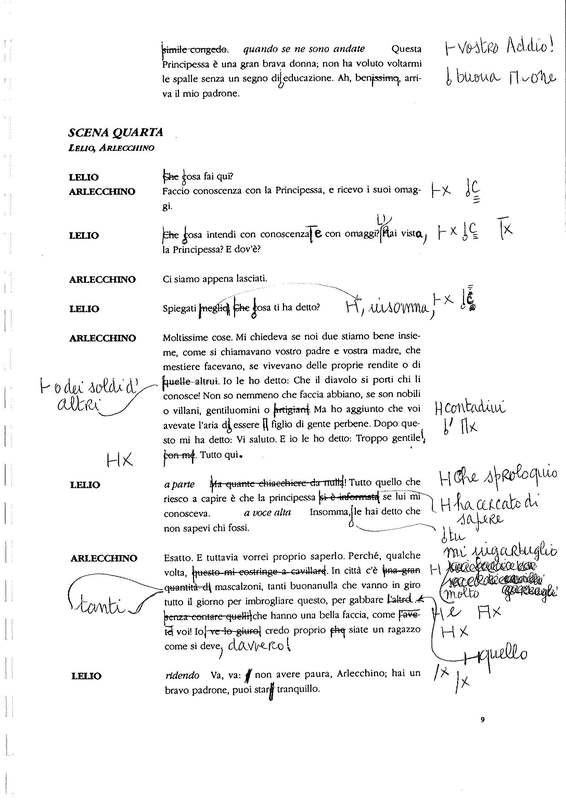 simile congedo. quando se ne sono andate Questa ⊢ vostro Addio!
Principessa è una gran brava donna; non ha voluto voltarmi
le spalle senza un segno di educazione. Ah, benissimo, arri- buona
va il mio padrone.
SCENA QUARTA
LELIO, ARLECCHINO
LELIO Che cosa fai qui?
ARLECCHINO Faccio conoscenza con la Principessa, e ricevo i suoi omag- ⊢ x C
gi.
LELIO Che cosa intendi con conoscenza e con omaggi? Hai vista, ⊢ x C x
la Principessa? E dov'è?
ARLECCHINO Ci siamo appena lasciati.
LELIO Spiegati meglio. Che cosa ti ha detto? H, insomma, ⊢ x C
ARLECCHINO Moltissime cose. Mi chiedeva se noi due stiamo bene insie-
me, come si chiamavano vostro padre e vostra madre, che
mestiere facevano, se vivevano delle proprie rendite o di
⊢ o dei soldi d' quelle altrui. Io le ho detto: Che il diavolo si porti chi li
altri conosce! Non so nemmeno che faccia abbiano, se son nobili
o villani, gentiluomini o artigiani. Ma ho aggiunto che voi H contadini
avevate l'aria di essere figlio di gente perbene. Dopo que-
sto mi ha detto: Vi saluto. E io le ho detto: Troppo gentile,
H x con me. Tutto qui.
LELIO a parte Ma quante chiacchiere da nulla! Tutto quello che H Che sproloquio
riesco a capire è che la principessa si è informata se lui mi H ha cercato di
conosceva. a voce alta Insomma, le hai detto che sapere
non sapevi chi fossi. tu
ARLECCHINO Esatto. E tuttavia vorrei proprio saperlo. Perché, qualche mi ingarbuglio
volta, questo mi costringe a cavillare. In città c'è una gran H
quantità di mascalzoni, tanti buonanulla che vanno in giro molto
tanti tutto il giorno per imbrogliare questo, per gabbare l'altro
senza contare quelli che hanno una bella faccia, come l'ave- H e x
te voi! Io, ve lo giuro, credo proprio che siate un ragazzo H x
come si deve, davvero! H quello
LELIO ridendo Va, va: non avere paura, Arlecchino; hai un /x
bravo padrone, puoi star tranquillo. /x
9